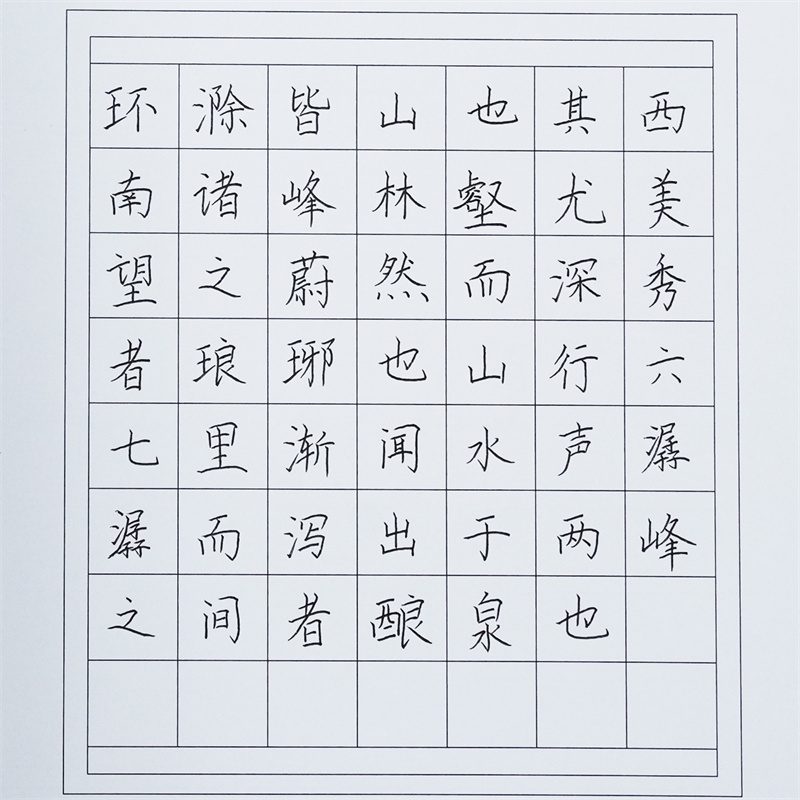 环滁皆山也其西
南诸峰林壑尤美
望之蔚然而深秀
者琅琊也山行六
七里渐闻水声潺
潺而泻出于两峰
之间者酿泉也